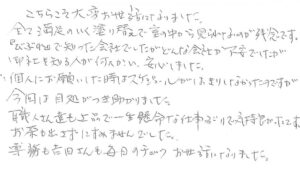 こちらこそ大変お世話になりました。
全て満足のいく塗り替えで家の中から見られないのが残念です。
飛び込みで知った会社でしたがどんな会社か不安でしたが
御社を知る人が何人かいて、安心しました。
個人にお願いした時はスケジュールがはっきりしなかったのですが
今回は目処がつき助かりました。
職人さん達も上品で一生懸命な仕事ぶりで気持良かったです
お茶も出さずにすみませんでした。
専務も吉田さんも毎日のチェックお世話になりました。